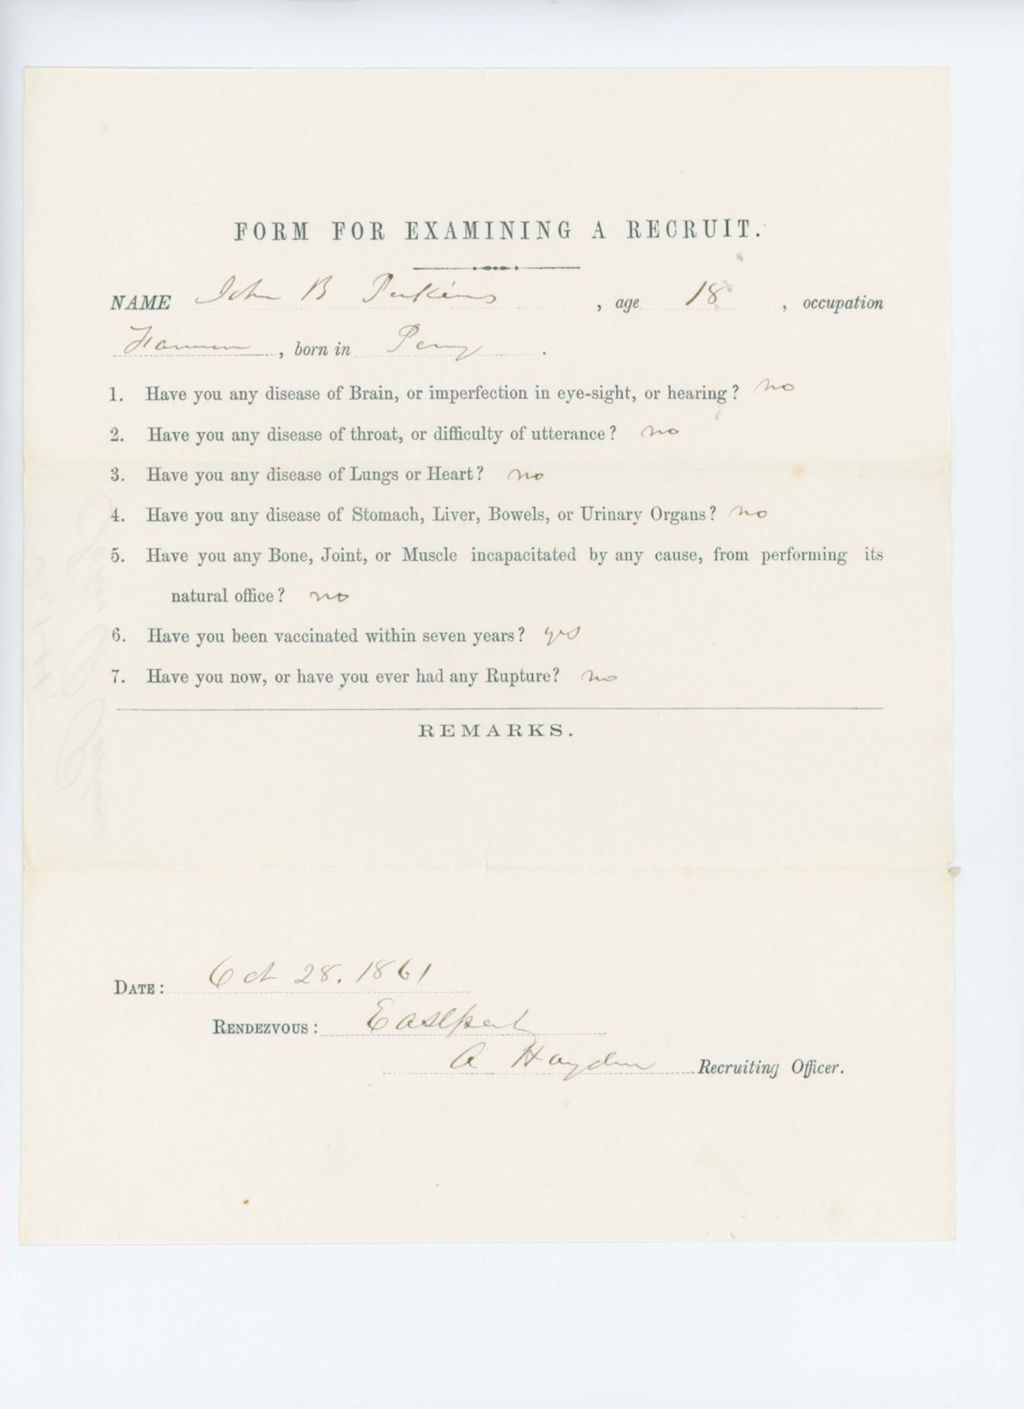 FORM FOR EXAMINING A RECRUIT.
NAME John B Perkins, age 18, occupation
Farmer, born in Perry.
1. Have you any disease of Brain, or imperfection in eye-sight, or hearing? no
2. Have you any disease of throat, or difficulty of utterance? no
3. Have you any disease of Lungs or Heart? no
4. Have you any disease of Stomach, Liver, Bowels, or Urinary Organs? no
5. Have you any Bone, Joint, or Muscle incapacitated by any cause, from performing its
natural office? no
6. Have you been vaccinated within seven years? yes
7. Have you now, or have you ever had any Rupture? no
REMARKS.
DATE: Oct 28. 1861
RENDEZVOUS: Eastport
A Hayden Recruiting Officer.